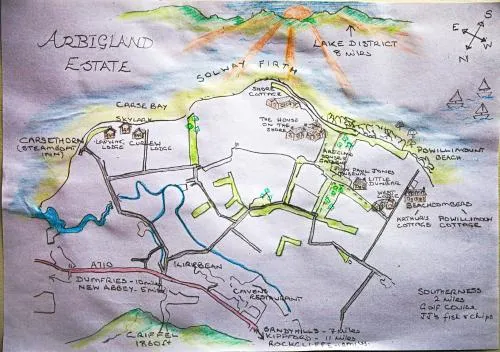 ARBIGLAND
ESTATE
LAKE DISTRICT
8 MILES
E
S
W
N
SOLWAY FIRTH
CARSE BAY
SHORE
COTTAGE
SKYLARK
CARSETHORN
(STEAMBOAT
INN)
LODGE
CURLEW
LODGE
THE HOUSE
ON THE
SHORE
POWILLIMOUNT
BEACH
ARBIGLAND
HOUSE &
GARDEN
JOHN PAUL JONES
MUSEUM
LITTLE
DUNBAR
WEST
LODGE
BEACHCOMBERS
ARTHURS
COTTAGE
POWILLIMOUNT
COTTAGE
A710
KIRKBEAN
DUMFRIES - 10 MILES
NEW ABBEY - 5 MILES
CAVENS
RESTAURANT
SOUTHERNESS
2 MILES
Golf Course
JJ's fish & chips
CRIFFEL
1860ft
SANDYHILLS - 7 MILES
KIPPFORD - 11 MILES
ROCKCLIFFE